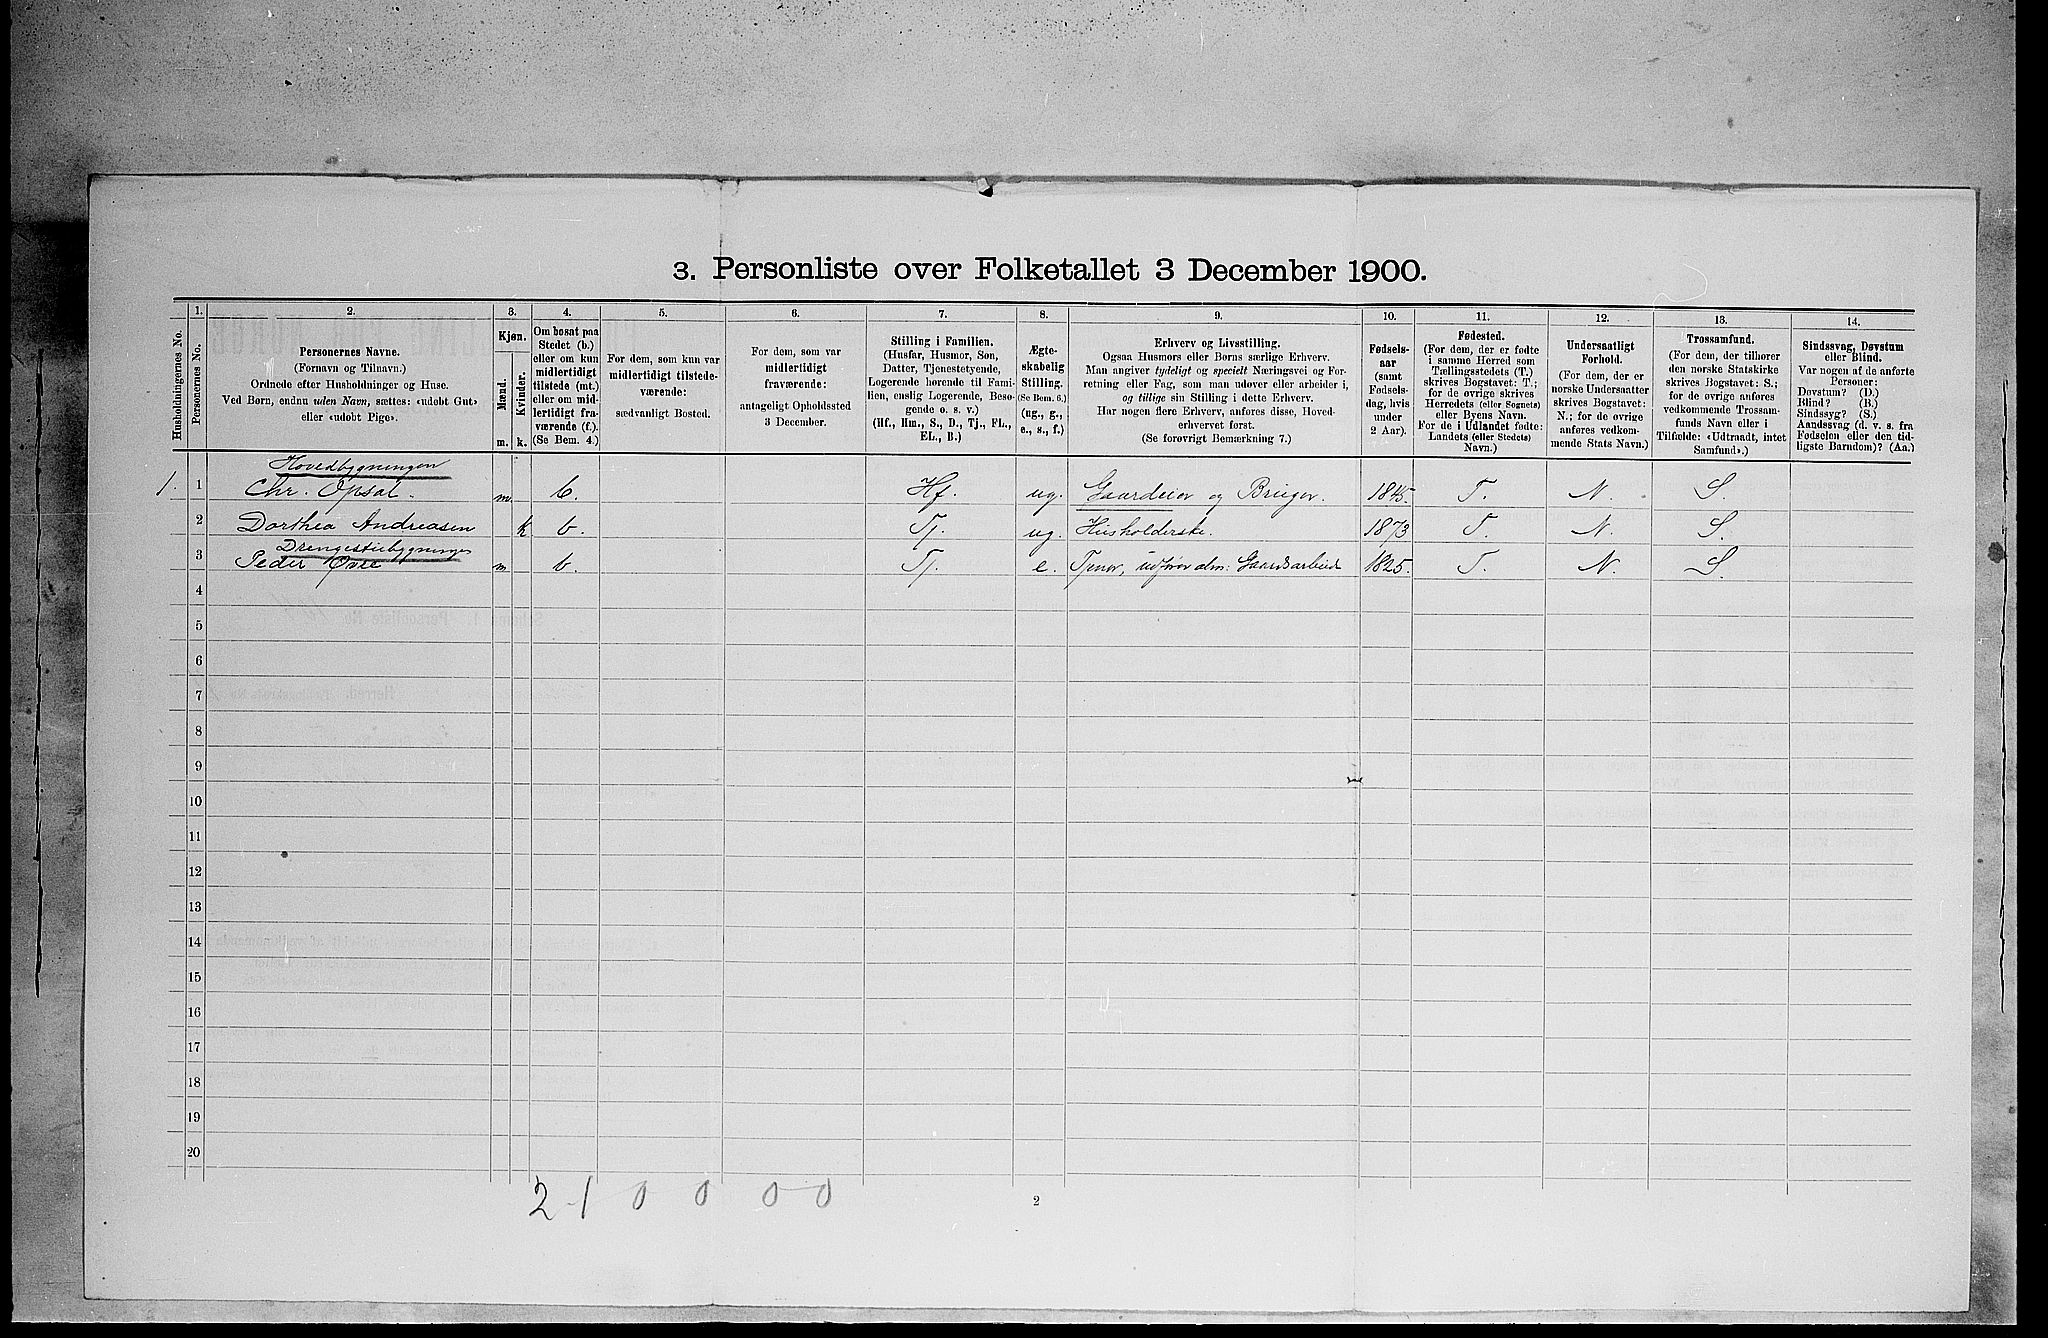 3. Personliste over Folketallet 3 December 1900.
Husholdningernes No.
1.
Personernes No.
2.
Personernes Navne.
(Fornavn og Tilnavn.)
Ordnede efter Husholdninger og Huse.
Ved Børn, endnu uden Navn, sættes: «udøbt Gut»
eller «udøbt Pige».
3.
Kjøn.
Mænd.
Kvinder.
m. k.
4.
Om bosat paa
Stedet (b.)
eller om kun
midlertidigt
tilstede (mt.)
eller om mid-
lertidigt fra-
værende (f.).
(Se Bem. 4.)
5.
For dem, som kun var
midlertidigt tilstede-
værende:
sædvanligt Bosted.
6.
For dem, som var
midlertidigt
fraværende:
antageligt Opholdssted
3 December.
7.
Stilling i Familien.
(Husfar, Husmor, Søn,
Datter, Tjenestetyende,
Logerende hørende til Fami-
lien, enslig Logerende, Besø-
gende o. s. v.)
(Hf., Hm., S., D., Tj., FL.,
EL., B.)
8.
Ægte-
skabelig
Stilling.
(Se Bem. 6.)
(ug., g.,
e., s., f.)
9.
Erhverv og Livsstilling.
Ogsaa Husmors eller Børns særlige Erhverv.
Man angiver tydeligt og specielt Næringsvei og For-
retning eller Fag, som man udøver eller arbeider i,
og tillige sin Stilling i dette Erhverv.
Har nogen flere Erhverv, anføres disse, Hoved-
erhvervet først.
(Se forøvrigt Bemærkning 7.)
10.
Fødsels-
aar
(samt
Fødsels-
dag, hvis
under
2 Aar).
11.
Fødested.
(For dem, der er fødte
i samme Herred som
Tællingsstedets (T.)
skrives Bogstavet: T.;
for de øvrige skrives
Herredets (eller Sognets)
eller Byens Navn.
For de i Udlandet fødte:
Landets (eller Stedets)
Navn.)
12.
Undersaatligt
Forhold.
(For dem, der er
norske Undersaatter
skrives Bogstavet:
N.; for de øvrige
anføres vedkom-
mende Stats Navn.)
13.
Trossamfund.
(For dem, der tilhører
den norske Statskirke
skrives Bogstavet: S.;
for de øvrige anføres
vedkommende Trossam-
funds Navn eller i
Tilfælde: «Udtraadt, intet
Samfund».)
14.
Sindssvag, Døvstum
eller Blind.
Var nogen af de anførte
Personer:
Døvstum? (D.)
Blind? (B.)
Sindssyg? (S.)
Aandssvag (d. v. s. fra
Fødselen eller den tid-
ligste Barndom)? (Aa.)
Hovedbygningen
1. 1 Chr. Opsal. m b. Hf. ug. Gaardeier og Bruger. 1845. T. N. S.
2 Dorthea Andreasen k b. Tj. ug. Husholderske. 1873 T. N. S.
Drengestuebygningen
3 Peder Øvre m b. Tj. e. Tjener, udfører alm: Gaardsarbeide 1825. T. N. S.
4
5
6
7
8
9
10
11
12
13
14
15
16
17
18
19
20
2-1 0 0 0-0
2